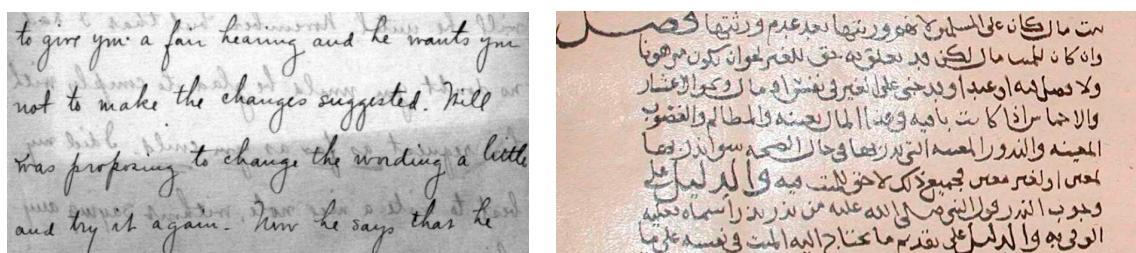 to give you a fair hearing and he wants you
not to make the changes suggested. Will
was proposing to change the wording a little
and try it again. Now he says that he
بيت مال كان على المسلمين لا هو ورثتها بعد عدم ورثتها فصل
وان كان للميت مال لكن قد تعلق به حق للغير اما بان يكون مرهونا
على الغير في نفس او مال وكذا الاعشار
والاخماس اذا كانت باقيه في هذا المال بعينه والمظالم والغصوب
المعينه والنذور المعينه التي نذر بها في حال الصحه سوا نذر بها
لمعين او لغير معين فجميع ذلك لا حق للميت فيه والدليل على
وجوب النذر قول النبي صلى الله عليه من نذر نذرا سماه فعليه
الوفى به والدليل على تقديم ما يحتاج اليه الميت في نفسه على ما